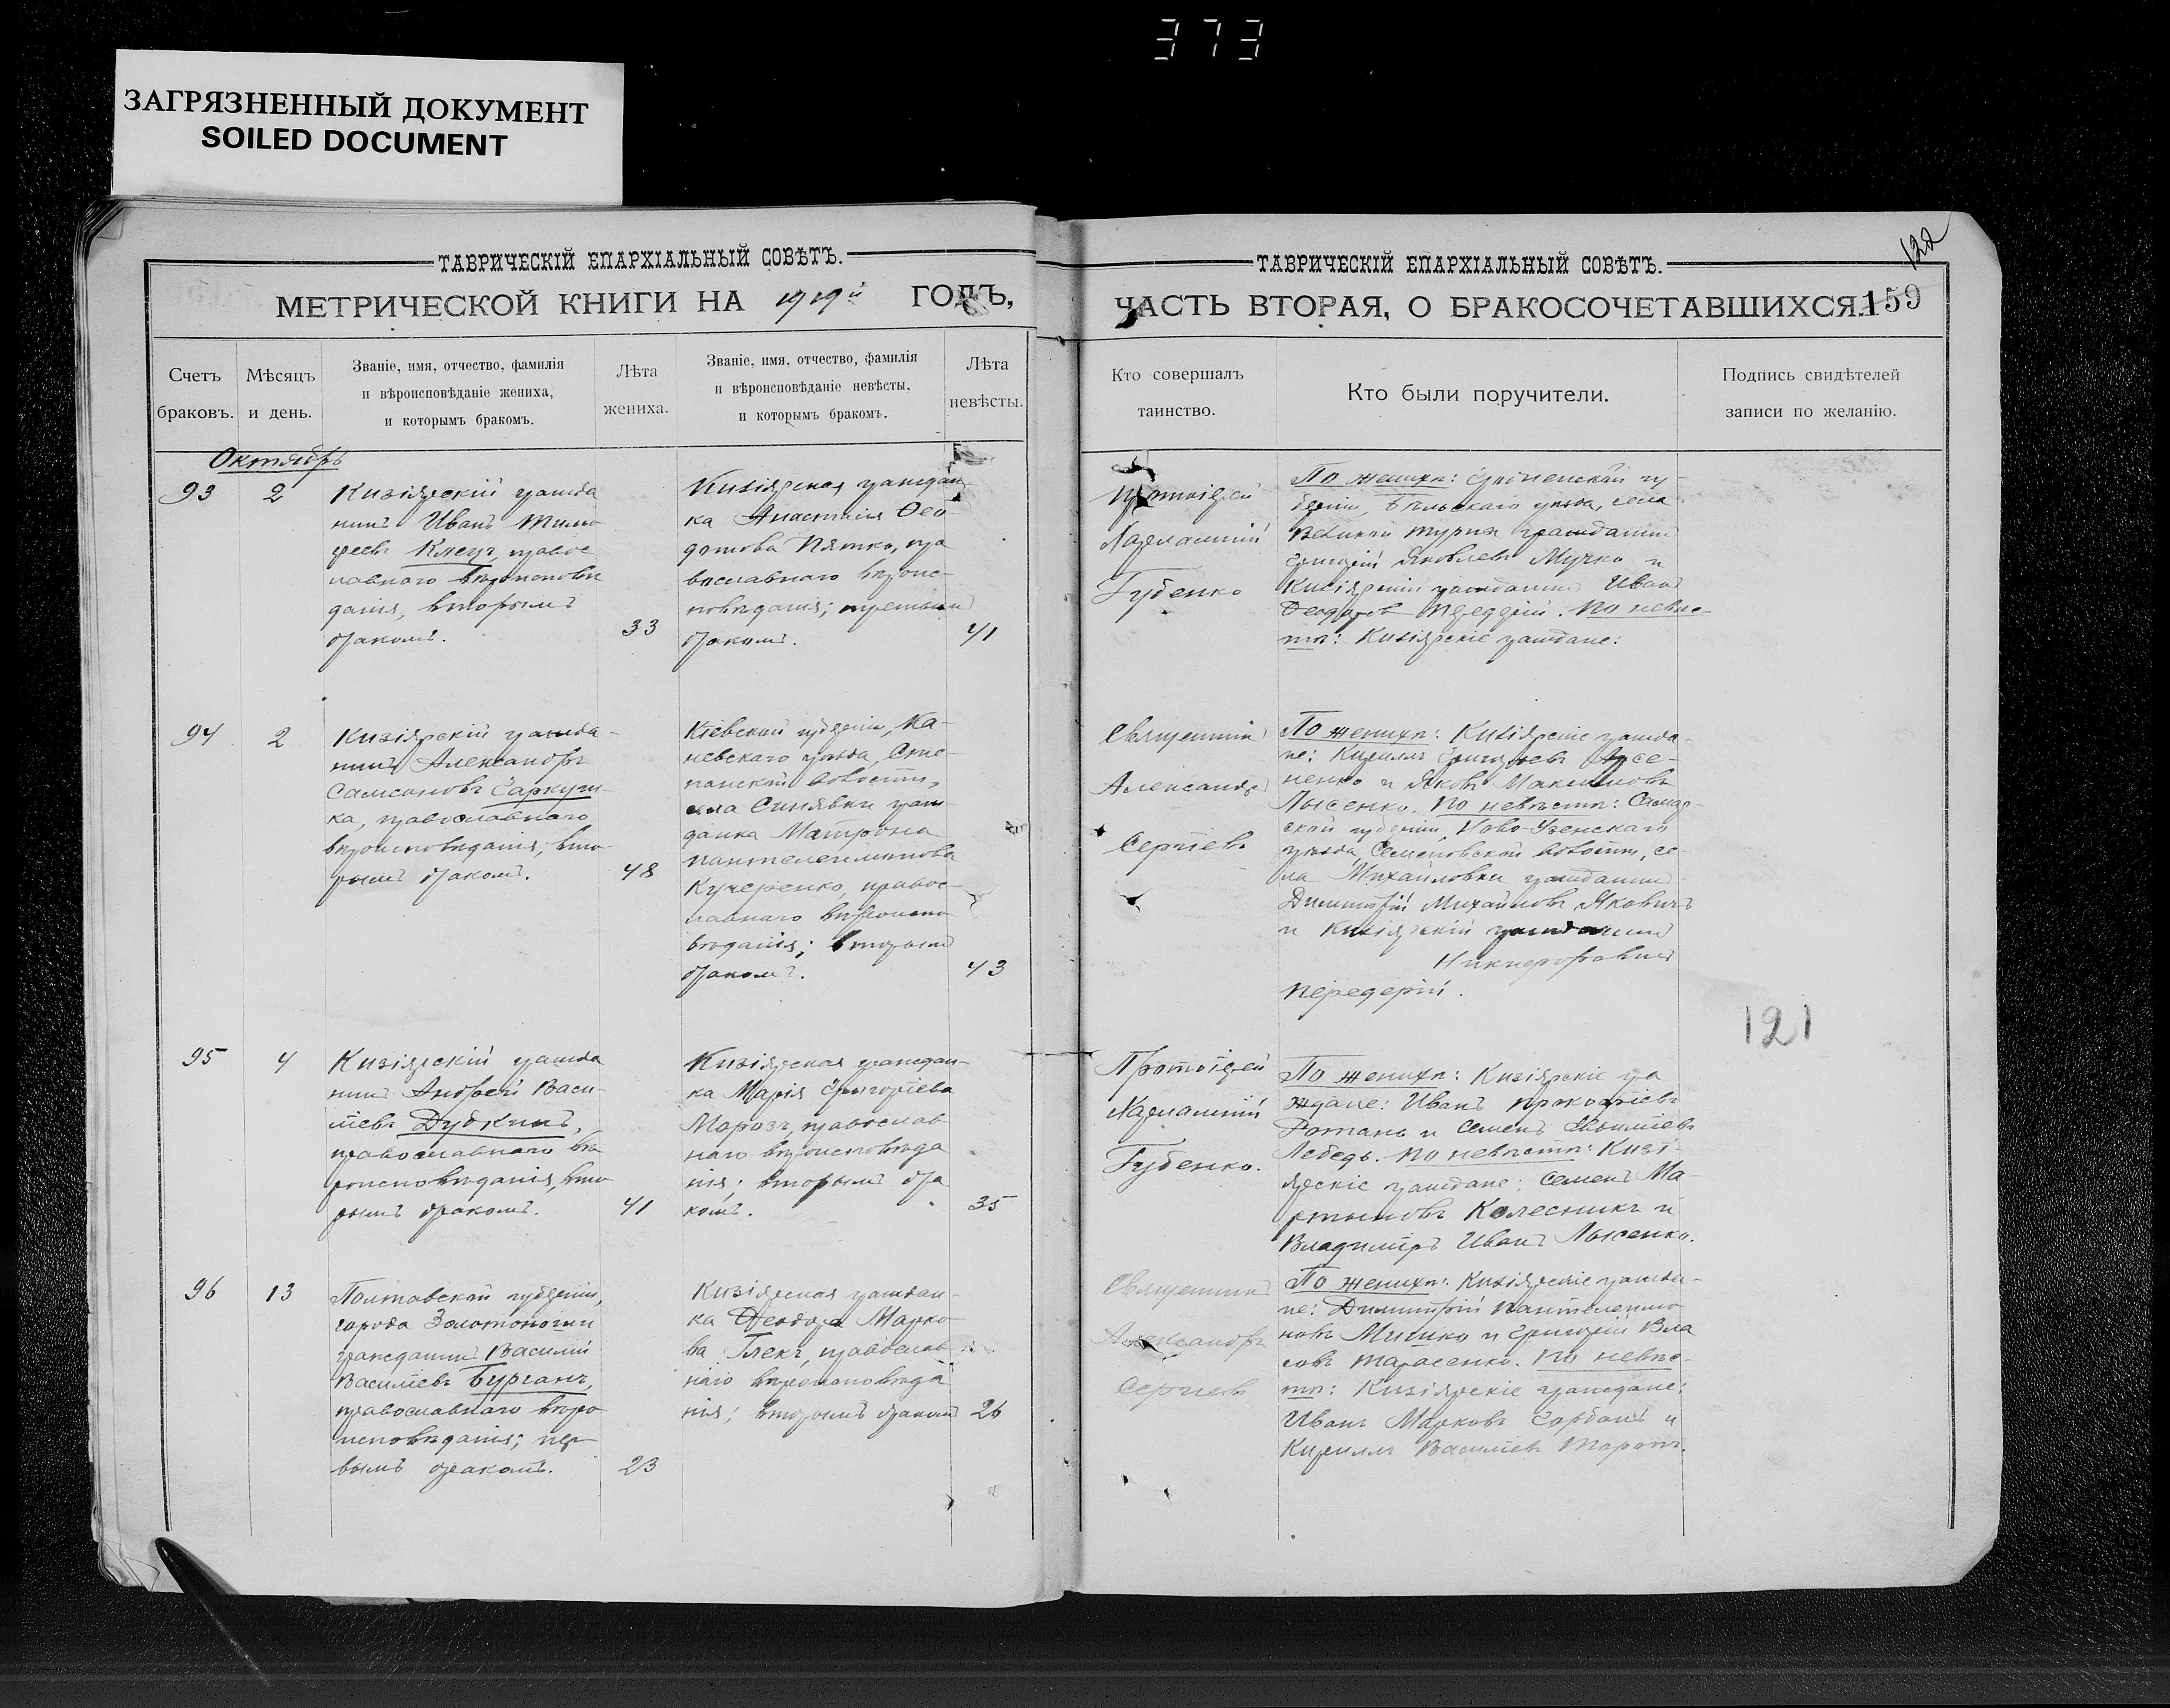 373
ЗАГРЯЗНЕННЫЙ ДОКУМЕНТ
SOILED DOCUMENT
ТАВРИЧЕСКІЙ ЕПАРХІАЛЬНЫЙ СОВѢТЪ.
МЕТРИЧЕСКОЙ КНИГИ НА 1919й ГОДЪ,
Счетъ браковъ.
Мѣсяцъ и день.
Званіе, имя, отчество, фамилія
и вѣроисповѣданіе жениха,
и которымъ бракомъ.
Лѣта жениха.
Званіе, имя, отчество, фамилія
и вѣроисповѣданіе невѣсты,
и которымъ бракомъ.
Лѣта невѣсты.
Октябрь
93
2
Кизіярскій гражда
нинъ Иванъ Тимо
феевъ православ
наго вѣроисповѣ
данія, вторымъ
бракомъ.
33
Кизіярская граждан
ка Анастасія Ѳео
дотова Пятко, пра
вославнаго вѣроис-
повѣданія; третьимъ
бракомъ.
41
94
2
Кизіярскій гражда-
нинъ Александръ
Самсоновъ Гаркуш-
ка, православнаго
вѣроисповѣданія, вто-
рымъ бракомъ.
48
Кіевской губерніи, Ка-
невскаго уѣзда, Сте-
панской волости,
села Синявки граж
данка Матрона
Пантелеимонова
Кучеренко, правос-
лавнаго вѣроиспо
вѣданія; вторымъ
бракомъ.
43
95
4
Кизіярскій гражда
нинъ Андрей Васи-
ліевъ Дудкинъ,
православнаго вѣ
роисповѣданія, вто
рымъ бракомъ.
41
Кизіярская граждан-
ка Марія Григоріева
Морозъ, православ
наго вѣроисповѣда
нія; вторымъ бра
комъ.
35
96
13
Полтавской губерніи,
города Золотоноши
гражданинъ Василій
Василіевъ Бурганъ,
православнаго вѣро
исповѣданія; пер
вымъ бракомъ.
23
Кизіярская граждан-
ка Ѳеодора Марко
ва Глекъ, православ
наго вѣроисповѣда
нія; вторымъ бракомъ
26
122
ТАВРИЧЕСКІЙ ЕПАРХІАЛЬНЫЙ СОВѢТЪ.
ЧАСТЬ ВТОРАЯ, О БРАКОСОЧЕТАВШИХСЯ.
159
Кто совершалъ таинство.
Кто были поручители.
Подпись свидѣтелей
записи по желанію.
Протоіерей
Харлампій
Губенко
По женихѣ: Гродненской гу-
берніи, Бѣльскаго уѣзда, села
Великой Турны гражданинъ
Григорій Яковлевъ Мучко и
Кизіярскій гражданинъ Иванъ
Ѳеодоровъ По невѣс-
тѣ: Кизіярскіе граждане:
Священникъ
Александръ
Сергіевъ
По женихѣ: Кизіярскіе гражда-
не: Кириллъ Григорьевъ Арсе-
ненко и Яковъ Максимовъ
Лысенко. По невѣстѣ: Самар-
ской губерніи, Ново-Узенскаго
уѣзда, Семеновской волости, се-
ла Михайловки гражданинъ
Димитрій Михайловъ Яковичъ
и Кизіярскій гражданинъ
Никифоровичъ
Передерій.
121
Протоіерей
Харлампій
Губенко.
По женихѣ: Кизіярскіе гра
ждане: Иванъ Прокофіевъ
Ротань и Семенъ
Лебедь. По невѣстѣ: Кизі-
ярскіе граждане: Семенъ Ма-
ртыновъ Колесникъ и
Владимиръ Иванъ Лысенко.
Священникъ
Александръ
Сергіевъ
По женихѣ: Кизіярскіе гражда-
не: Димитрій Пантелеимо
новъ Мишко и Григорій Вла
совъ Тарасенко. По невѣс-
тѣ: Кизіярскіе граждане:
Иванъ Марковъ Горбань и
Кириллъ Василіевъ Таранъ.